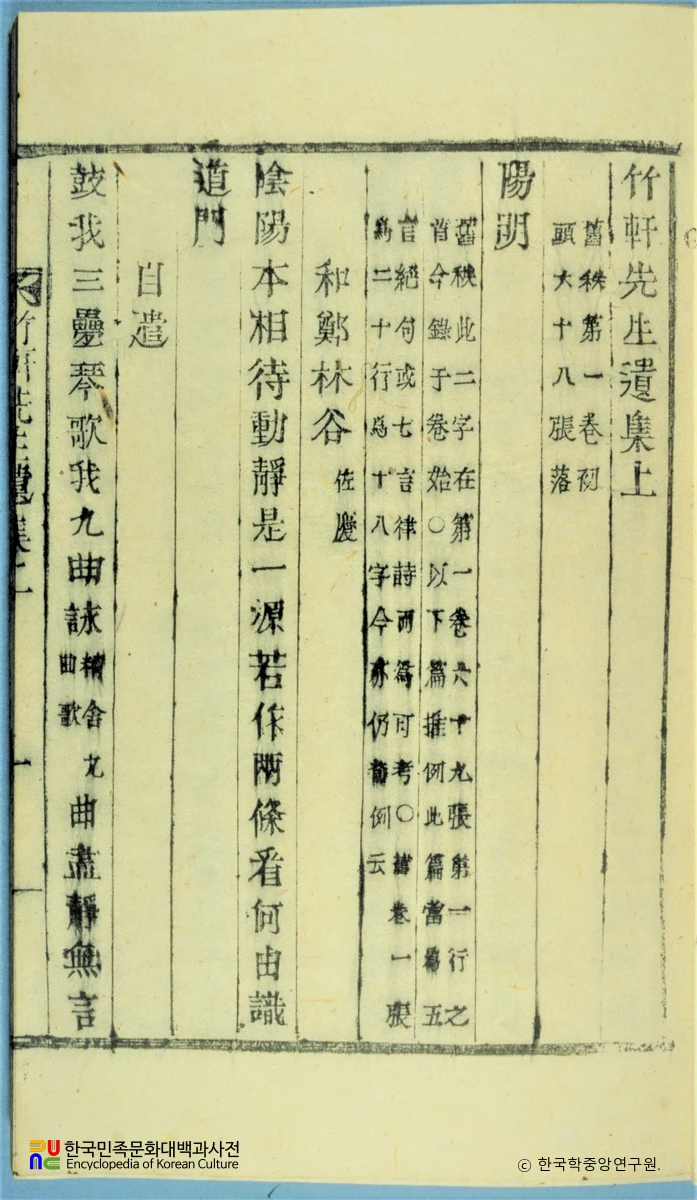 竹軒先生遺集上
舊秩第一卷初
頭六十八張落
陽明
舊秩此二字在第一卷六十九張第一行之
首今錄于卷始〇以下篇推例此篇當爲五
言絕句或七言律詩而爲可考〇舊卷一張
爲二十行爲十八字今亦仍舊例云
和鄭林谷 佐慶
陰陽本相待動靜是一源若作兩條看何由識
道門
自遣
鼓我三疊琴歌我九曲詠精舍九曲歌曲盡靜無言
한국민족문화대백과사전
Encyclopedia of Korean Culture
ⓒ 한국학중앙연구원.